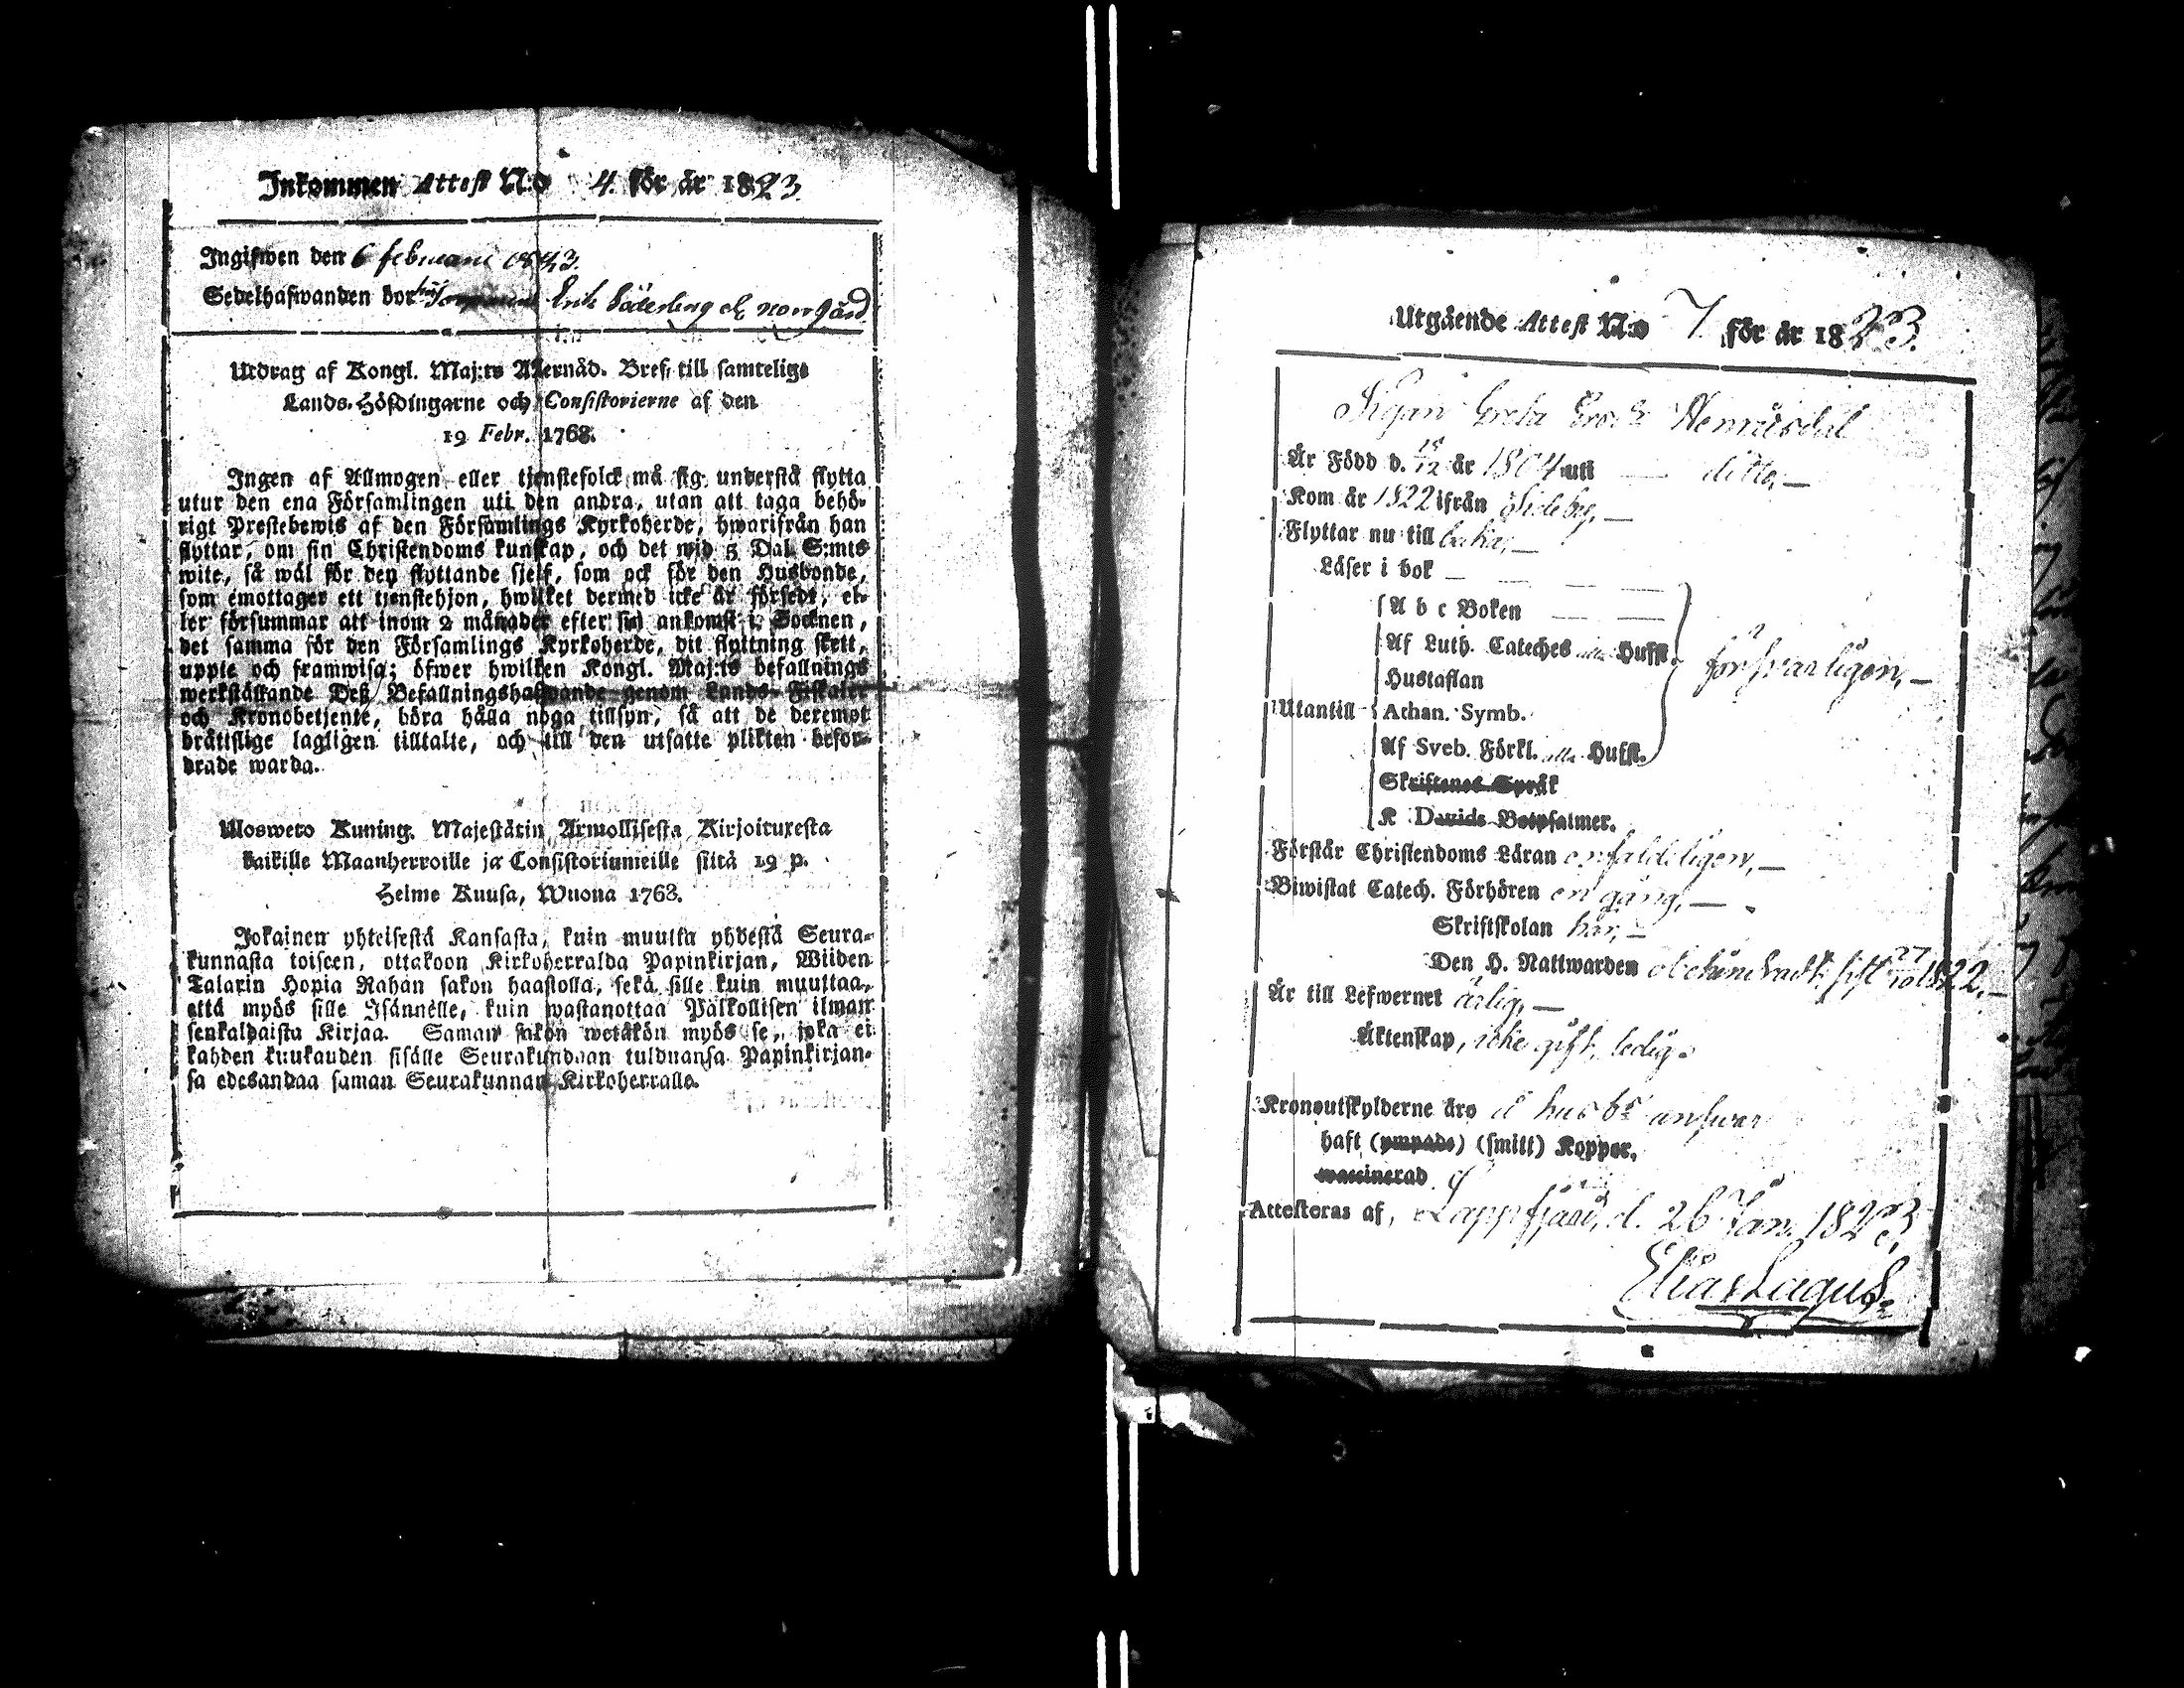 Inkommen Attest N:o 4. för år 1823.
Ingifwen den 6 februarii 1823.
Sedelhafwanden bor hos Erik Söderling å Norrgård
Utdrag af Kongl. Maj:ts Allernåd. Bref, till samtelige
Lands-Höfdingarne och Consistorierne af den
19 Febr. 1768.
Ingen af Allmogen eller tjenstefolck må sig understå flytta
utur den ena Församlingen uti den andra, utan att taga behö-
rigt Prestebewis af den Församlings Kyrkoherde, hwarifrån han
flyttar, om sin Christendoms kunskap, och det wid 5 Dal. S:mts
wite, så wäl för den flyttande sjelf, som ock för den Husbonde,
som emottager ett tjenstehjon, hwilket dermed icke är försedt, el-
ler försummar att inom 2 månader efter sin ankomst i Socknen,
det samma för den Församlings Kyrkoherde, dit flyttning skett,
uppte och framwisa; öfwer hwilken Kongl. Maj:ts befallnings
werkställande Deß Befallningshafwande genom Lands-Fiskaler
och Kronobetjente, böra hålla noga tillsyn, så att de deremot
bråttslige lagligen tilltalte, och till den utsatte plikten befor-
drade warda.
Ulosweto Kuning. Majestätin Armollisesta Kirjoituxesta
kaikille Maanherroille ja Consistoriumeille siitä 19 p.
Helme Kuusa, Wuona 1768.
Jokainen yhteisestä Kansasta, kuin muutta yhdestä Seura-
kunnasta toiseen, ottakoon Kirkoherralda Papinkirjan, Wiiden
Talarin Hopia Rahan sakon haastolla, sekä sille kuin muuttaa,
että myös sille Isännälle, kuin wastanottaa Palkollisen ilman
senkaldaista Kirjaa. Saman sakon wetäkön myös se, joka ei
kahden kuukauden sisälle Seurakundaan tulduansa Papinkirjan-
sa edesandaa saman Seurakunnan Kirkoherralle.
Utgående Attest N:o 7. för år 1823.
Pigan Greta Ersdr
Är Född d. 18/12 år 1804 uti ditto,
Kom år 1822 ifrån Sideby,
Flyttar nu till baka,
Läser i bok
A b c Boken
Af Luth. Cateches alla Hufst.
Hustaflan
Utantill Athan. Symb.
Af Sveb. Förkl. alla Hufst.
försvarligen,
Skriftenes Språk
K Davids Botpsalmer.
Förstår Christendoms Läran enfaldeligen,
Biwistat Catech. Förhören en gång,
Skriftskolan här,
Den H. Nattwarden obehindradt sist 27/10 1822,
Är till Lefwernet ärlig,
Äktenskap, icke gift, ledig.
Kronoutskylderne äro å husbs answar
haft (ympade) (smitt) Koppor,
waccinerad
Attesteras af, Lappfjärd, d. 26 Jan. 1823,
Elias Lagus